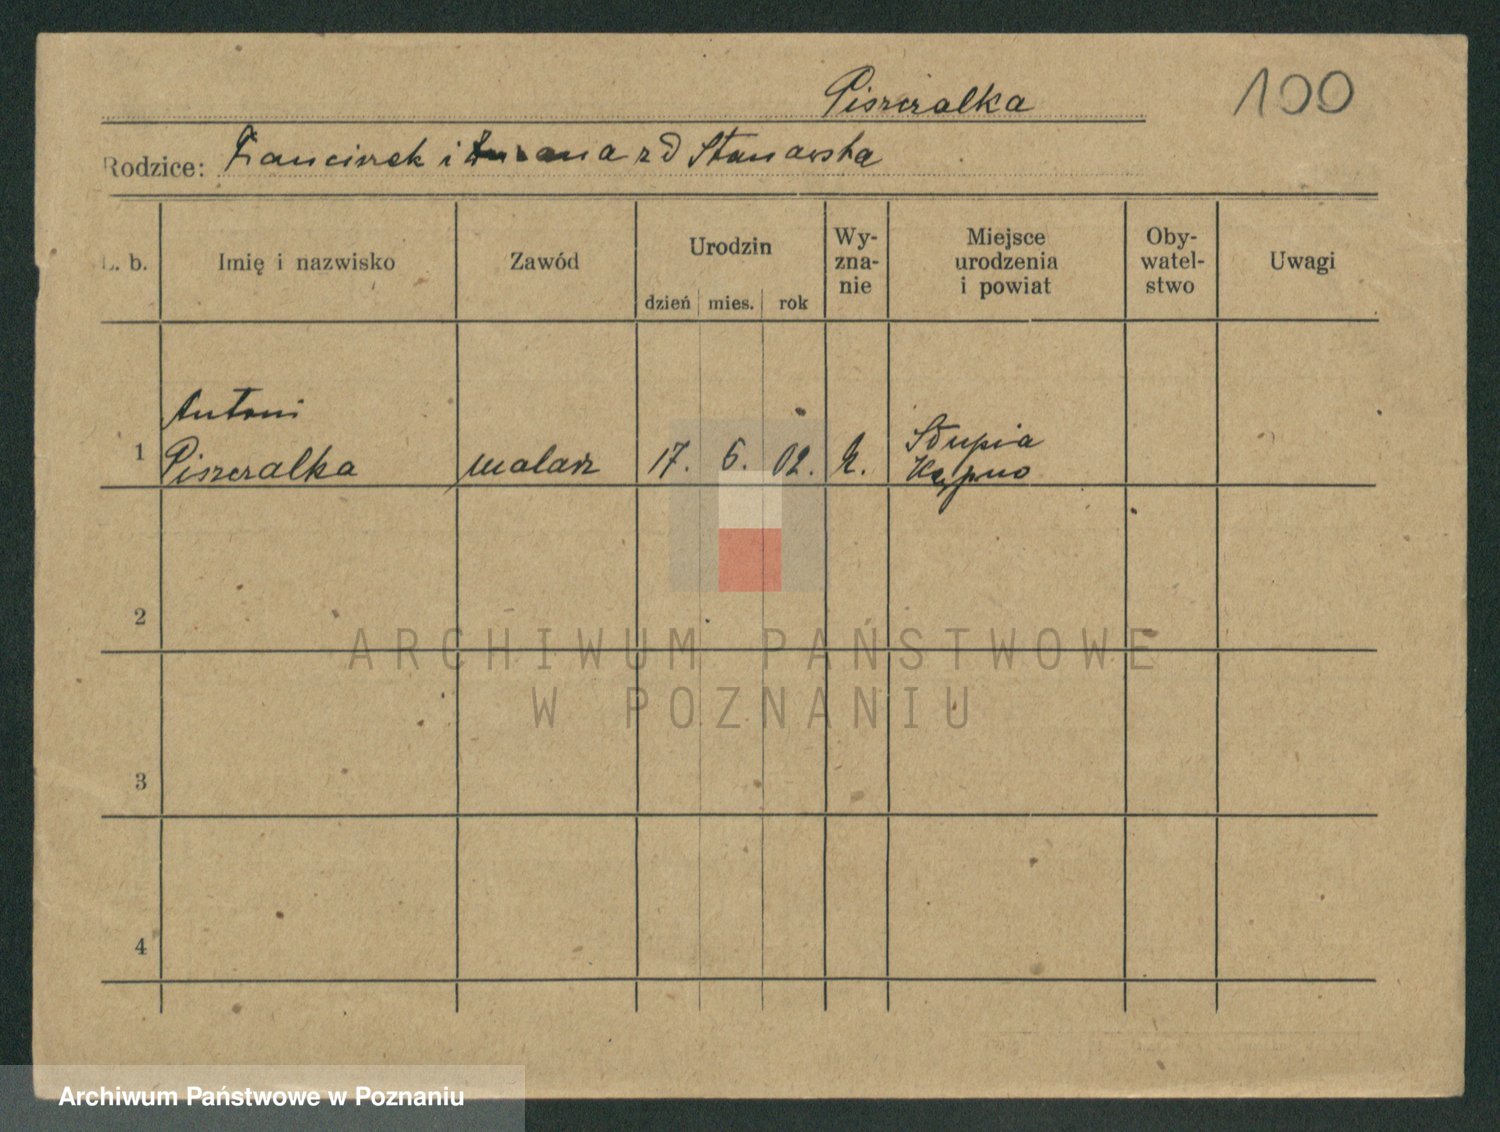 Piszczalka 100
Rodzice: Franciszek i a z d Stanawska
L. b. Imię i nazwisko Zawód Urodzin dzień mies. rok Wy-zna-nie Miejsce urodzenia i powiat Oby-watel-stwo Uwagi
Antoni
1 Piszczalka malarz 17. 6. 02. k. Słupia
Kępno
2
3
4
ARCHIWUM PAŃSTWOWE
W POZNANIU
Archiwum Państwowe w Poznaniu